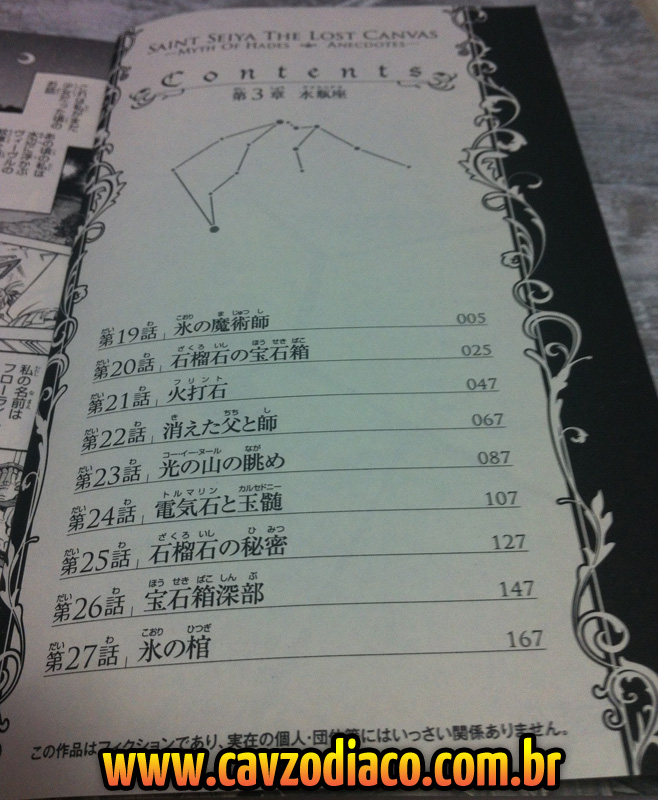 SAINT SEIYA THE LOST CANVAS
MYTH OF HADES ANECDOTES
Contents
第3章 水瓶座
第19話 氷の魔術師 005
第20話 石榴石の宝石箱 025
第21話 火打石 047
第22話 消えた父と師 067
第23話 光の山の眺め 087
第24話 電気石と玉髄 107
第25話 石榴石の秘密 127
第26話 宝石箱深部 147
第27話 氷の棺 167
この作品はフィクションであり、実在の個人・団体等にはいっさい関係ありません。
www.cavzodiaco.com.br
私の名前は
フローライ